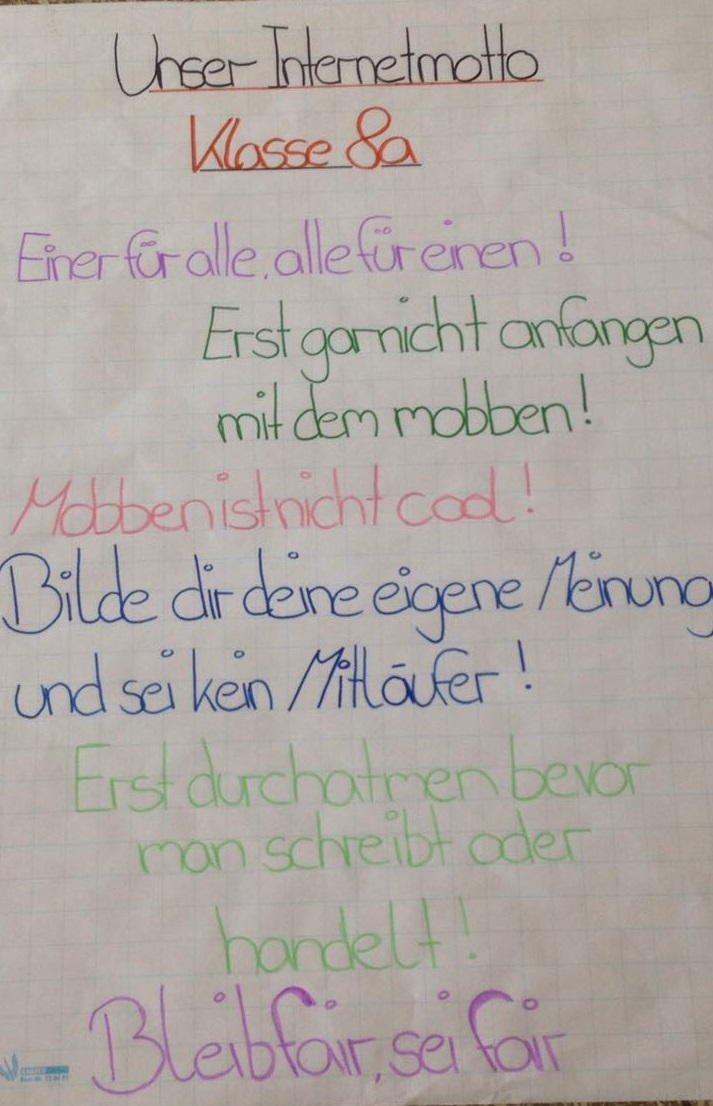 Unser Internetmotto
Klasse 8a
Einer für alle, alle für einen!
Erst garnicht anfangen
mit dem mobben!
Mobben ist nicht cool!
Bilde dir deine eigene Meinung
und sei kein Mitläufer!
Erst durchatmen bevor
man schreibt oder
handelt!
Bleib fair, sei fair